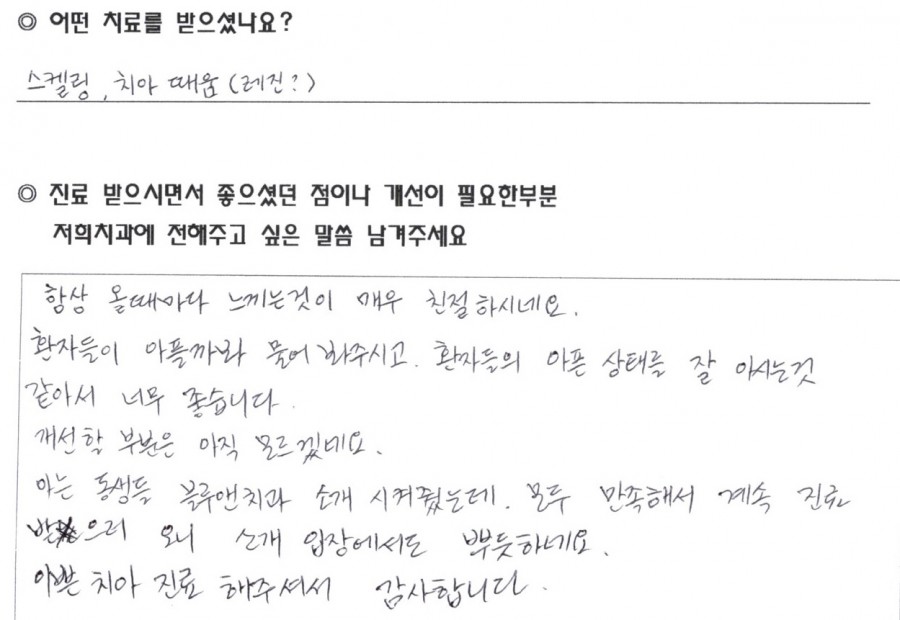 ◎ 어떤 치료를 받으셨나요?
스켈링, 치아 때움 (레진?)
◎ 진료 받으시면서 좋으셨던 점이나 개선이 필요한부분
저희치과에 전해주고 싶은 말씀 남겨주세요
항상 올때마다 느끼는것이 매우 친절하시네요.
환자들이 아플까봐 물어 봐주시고. 환자들의 아픈 상태를 잘 아시는것
같아서 너무 좋습니다.
개선할 부분은 아직 모르겠네요.
아는 동생들 블루앤치과 소개 시켜줬는데. 모두 만족해서 계속 진료
받으러 오니 소개 입장에서도 뿌듯하네요.
이쁜 치아 진료 해주셔서 감사합니다.